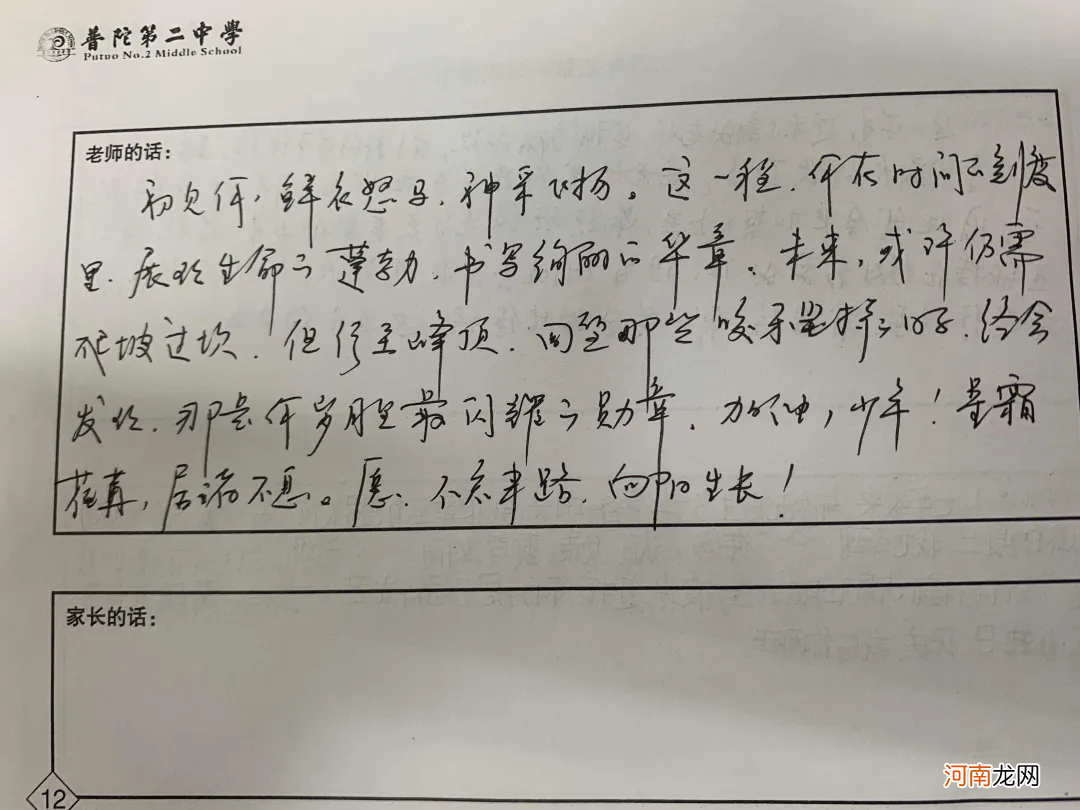 普陀第二中學
Putuo No.2 Middle School
老师的话:
初见你,鲜衣怒马,神采飞扬。这一程,你在时间的刻度
里,展现生命之蓬勃,书写绚丽的华章。未来,或许仍需
爬坡过坎,但行至峰顶,回望那些咬牙坚持的日子,终会
发现,那是你岁月里最闪耀的勋章,加油,少年!星霜
荏苒,居诸不息。愿:不忘来路,向阳生长!
家长的话:
12
河南龙网